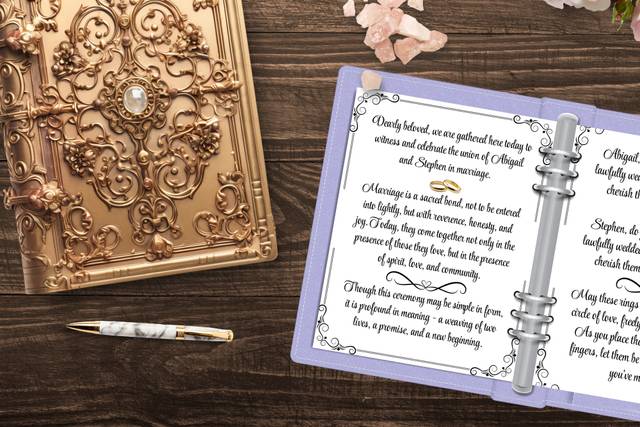 Dearly beloved, we are gathered here today to
witness and celebrate the union of Abigail
and Stephen in marriage.
Marriage is a sacred bond, not to be entered
into lightly, but with reverence, honesty, and
joy. Today, they come together not only in the
presence of those they love, but in the presence
of spirit, love, and community.
Though this ceremony may be simple in form,
it is profound in meaning - a weaving of two
lives, a promise, and a new beginning.
Abigail,
lawfully wedde
cherish
Stephen, do
lawfully wedded
cherish them
May these rings
circle of love, freely
As you place the
fingers, let them be
you've m